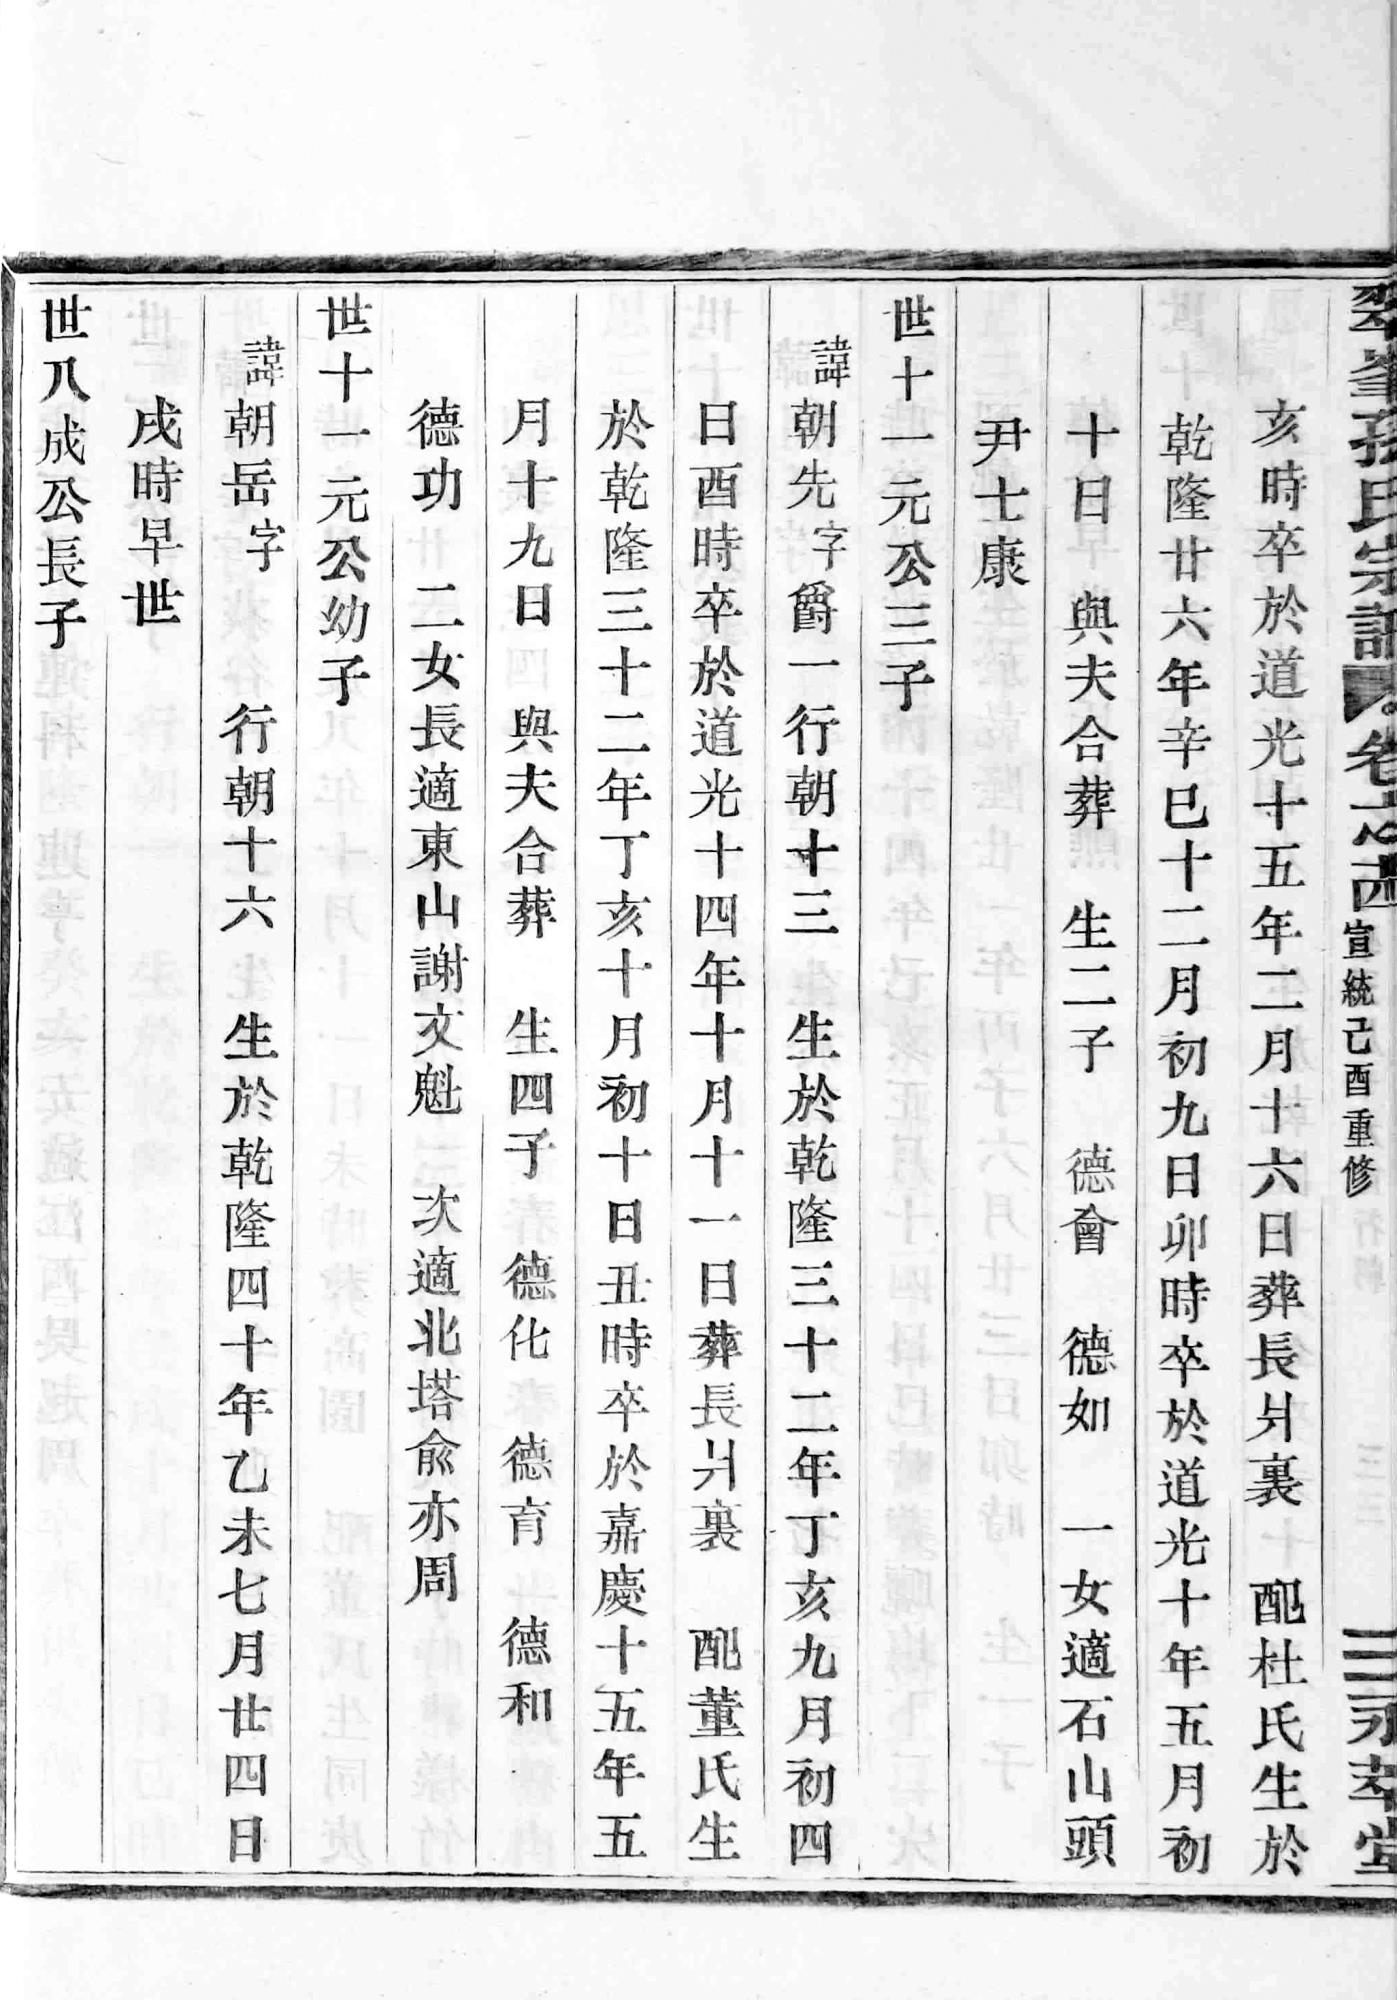 翠峯孫氏宗譜 卷之四 宣統己酉重修 三 永萃堂
亥時卒於道光十五年二月十六日葬長爿裏 配杜氏生於
乾隆廿六年辛巳十二月初九日卯時卒於道光十年五月初
十日 與夫合葬 生二子 德會 德如 一女適石山頭
尹士康
世十一元公三子
諱朝先字爵一行朝十三 生於乾隆三十二年丁亥九月初四
日酉時卒於道光十四年十月十一日葬長爿裏 配董氏生
於乾隆三十二年丁亥十月初十日丑時卒於嘉慶十五年五
月十九日 與夫合葬 生四子 德化 德育 德和
德功 二女長適東山謝文魁 次適北塔俞亦周
世十一元公幼子
諱朝岳字 行朝十六 生於乾隆四十年乙未七月廿四日
戌時早世
世八成公長子